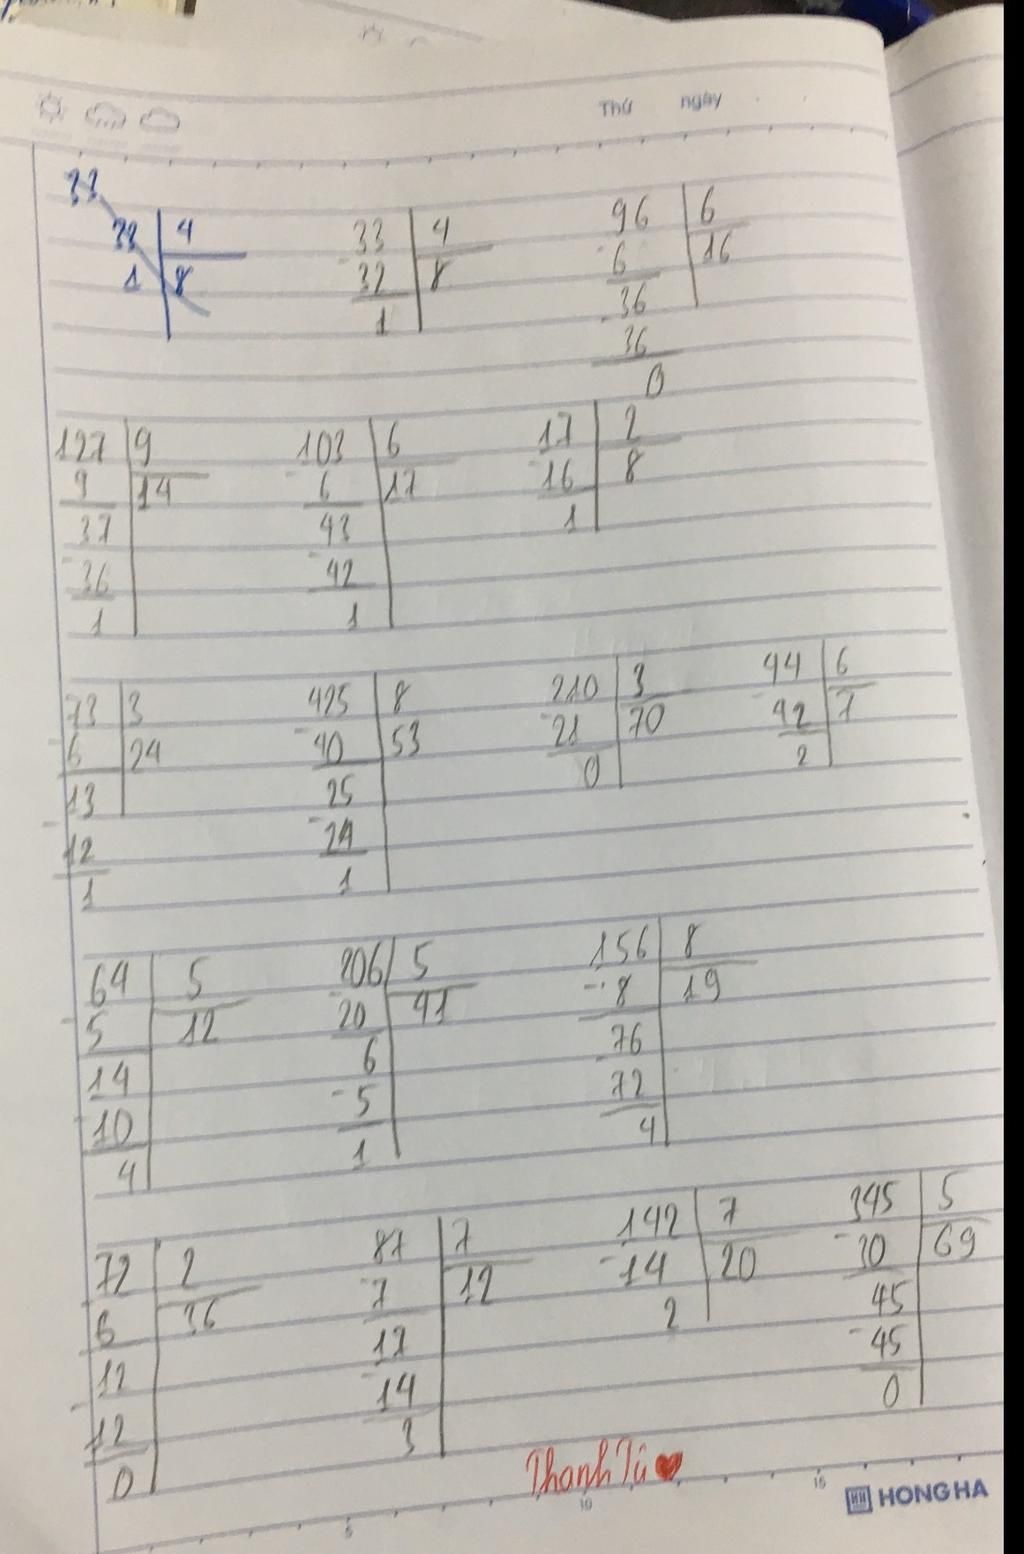 Thứ ngày
33
33 4
1 8
33 4 96 6
-32 8 -6 16
1 36
-36
0
127 9 103 6 17 2
9 14 -6 17 -16 8
37 43 1
-36 -42
1 1
73 3 425 8 210 3 44 6
6 24 -40 53 -21 70 -42 7
13 25 0 2
-12 -24
1 1
64 5 206 5 156 8
-5 12 -20 41 -8 19
14 6 76
10 -5 -72
4 1 4
72 2 87 7 142 7 345 5
6 36 -7 12 -14 20 -30 69
12 17 2 45
-12 -14 -45
0 3 0
Thanh Tú
5 10 15
HH HONG HA